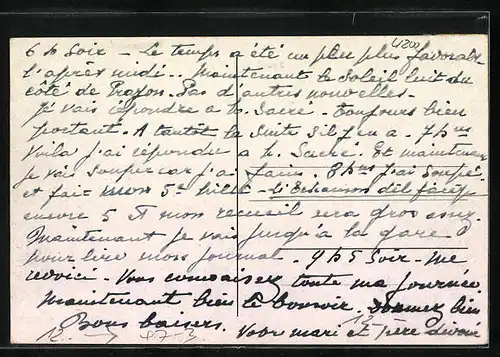 6 h Soir - Le temps a été un peu plus favorable
l'après midi.. Maintenant le Soleil luit du
côté de Pas d'autres nouvelles -
Je vais répondre a h. Sacré. toujours bien
portant. A tantôt la Suite S'il y en a. 7 h
Voila j'ai répondu a h. Sacré. Et maintenant
je vais Souper car j'ai faim. 8 h J'ai Soupé
et fait mon 5e billet
encore 5 mon recueil sera gros assez.
Maintenant je vais jusqu'à la gare
pour lire mon journal. 9 h 5 Soir - me
revoici. Vous connaissez toute ma journée.
Maintenant bien le bonsoir. Dormez bien
Bons baisers.
Votre mari et père